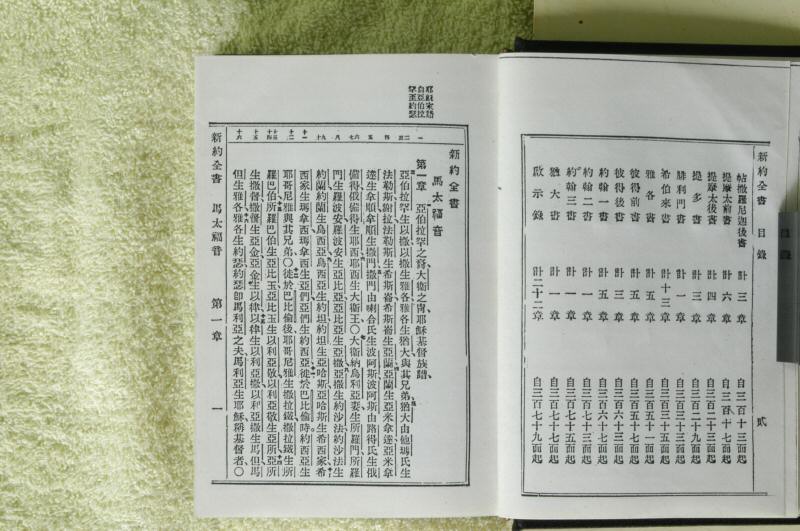 新約全書 目錄 貳
帖撒羅尼迦後書 計三章 自三百十三面起
提摩太前書 計六章 自三百十七面起
提摩太後書 計四章 自三百二十三面起
提多書 計三章 自三百二十九面起
腓利門書 計一章 自三百三十三面起
希伯來書 計十三章 自三百三十五面起
雅各書 計五章 自三百五十一面起
彼得前書 計五章
彼得後書 計三章 自三百六十三面起
約翰一書 計五章 自三百六十七面起
約翰二書 計一章
約翰三書 計一章 自三百七十五面起
猶大書 計一章 自三百七十七面起
啟示錄 計二十二章 自三百七十九面起
耶穌家譜
自亞伯拉
罕至約瑟
新約全書
馬太福音
第一章 亞伯拉罕之裔大衞之裔耶穌基督族譜
亞伯拉罕生以撒以撒生雅各雅各生猶大與其兄弟猶大由他瑪氏生
法勒斯謝拉法勒斯生希斯崙希斯崙生亞蘭亞蘭生亞米拿達亞米拿
達生拿順拿順生撒門撒門由喇合氏生波阿斯波阿斯由路得氏生俄
備得俄備得生耶西耶西生大衞王〇大衞納烏利亞妻生所羅門所羅
門生羅波安羅波安生亞比亞亞比亞生亞撒亞撒生約沙法約沙法生
約蘭約蘭生烏西亞烏西亞生約坦約坦生亞哈斯亞哈斯生希西家希
西家生瑪拿西瑪拿西生亞們亞們生約西亞徙於巴比倫時約西亞生
耶哥尼雅與其兄弟〇徙於巴比倫後耶哥尼雅生撒拉鐵撒拉鐵生所
羅巴伯所羅巴伯生亞比玉亞比玉生以利亞敬以利亞敬生亞所亞所
生撒督撒督生亞金亞金生以律以律生以利亞撒以利亞撒生馬但馬
但生雅各雅各生約瑟約瑟卽馬利亞之夫馬利亞生耶穌稱基督者〇
新約全書 馬太福音 第一章 一